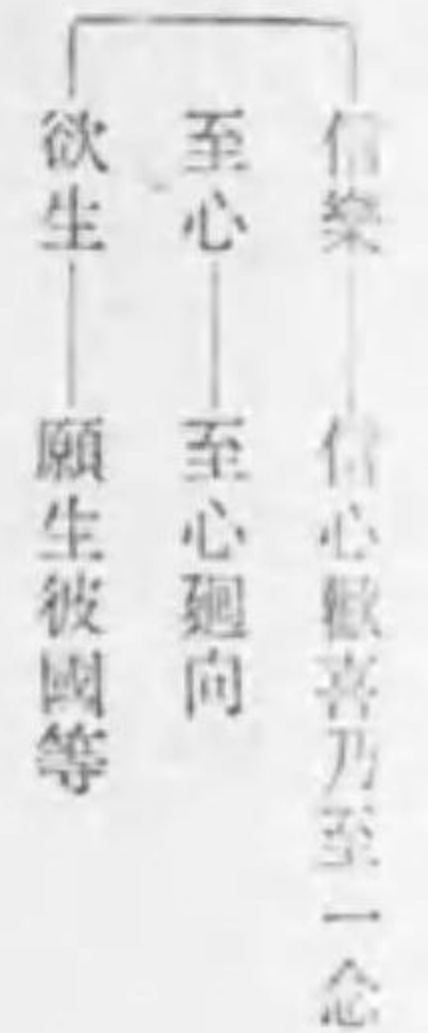 信樂 信心歡喜乃至一念
至心 至心廻向
欲生 願生彼國等